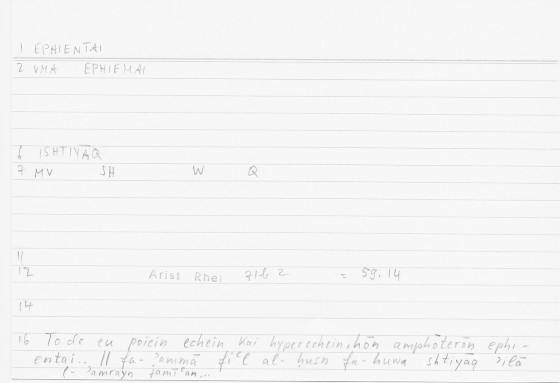 1 EPHIENTAI
2 VMA EPHIEMAI
6 ISHTIYĀQ
7 MV SH W Q
11
12 Arist Rhet 71b2 = 59.14
14
16 To de eu poiein echein kai hyperechein, hōn amphoterōn ephi-
entai.. || fa-ʾammā fiʿl al-ḥusn fa-huwa shtiyāq ʾilā
l-ʾamrayn jamīʿan...